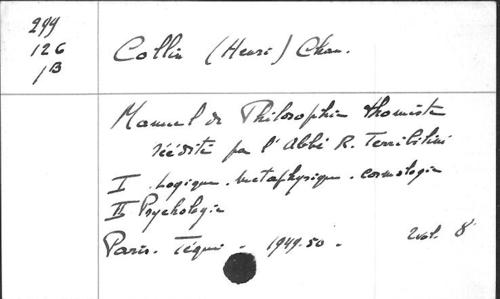 299
126
1B
Collin (Henri) Chan.
Manuel de Philosophie thomiste
réédité par l'Abbé R. Terribilini
I Logique. Metaphysique. cosmologie
II Psychologie
Paris. Téqui. 1949.50. 2 vol. 8°